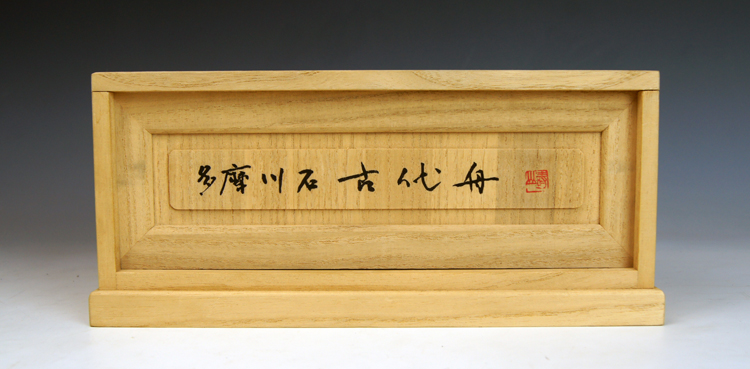 多摩川石 古代舟